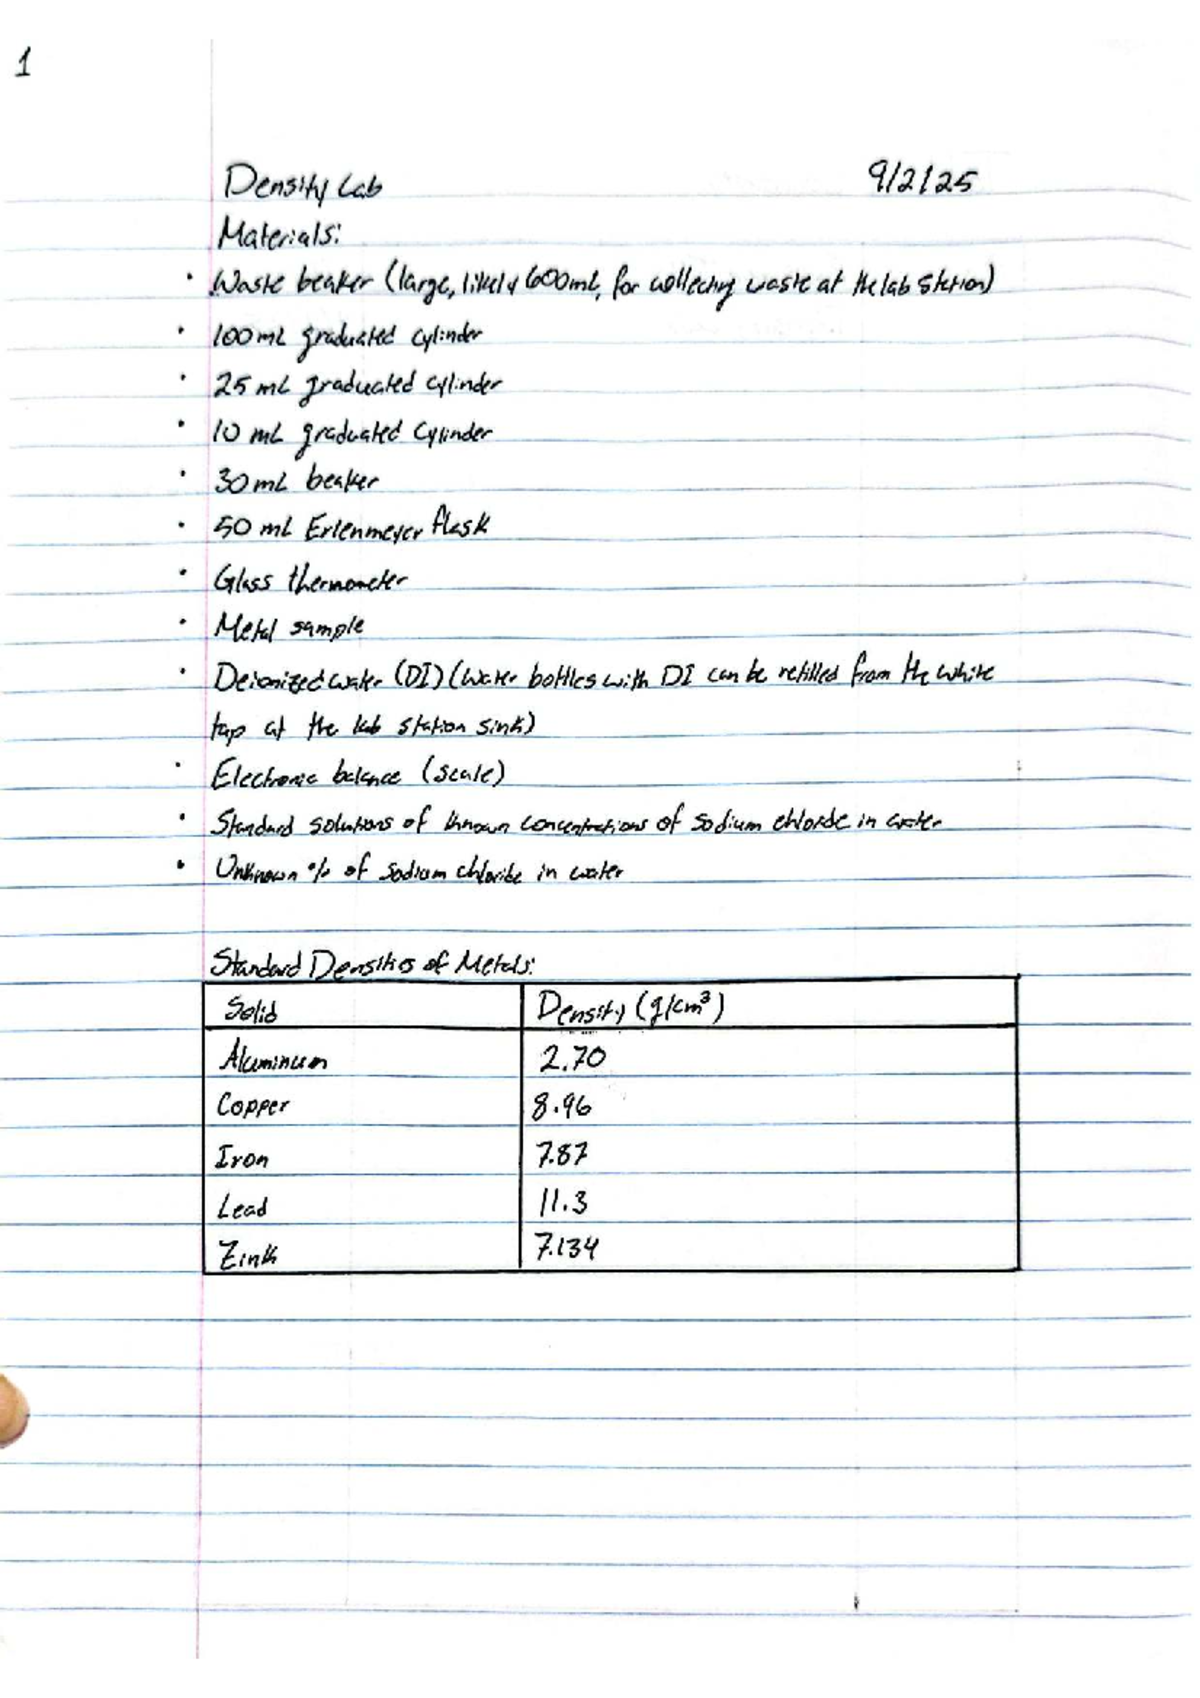 1
Density Lab 9/2/25
Materials:
• Waste beaker (large, likely 600mL, for collecting waste at the lab station)
• 100mL graduated cylinder
• 25 mL graduated cylinder
• 10 mL graduated cylinder
• 30mL beaker
• 50 mL Erlenmeyer flask
• Glass thermometer
• Metal sample
• Deionized water (DI) (Water bottles with DI can be refilled from the white
tap at the lab station sink)
• Electronic balance (scale)
• Standard solutions of known concentrations of sodium chloride in water
• Unknown % of sodium chloride in water
Standard Densities of Metals:
Solid Density (g/cm³)
Aluminum 2.70
Copper 8.96
Iron 7.87
Lead 11.3
Zink 7.134